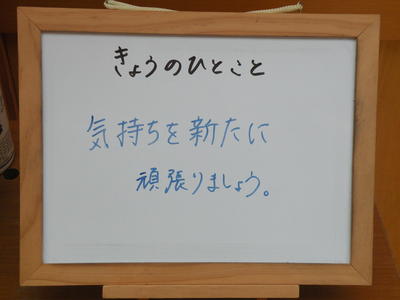 きょうのひとこと
気持ちを新たに
頑張りましょう。